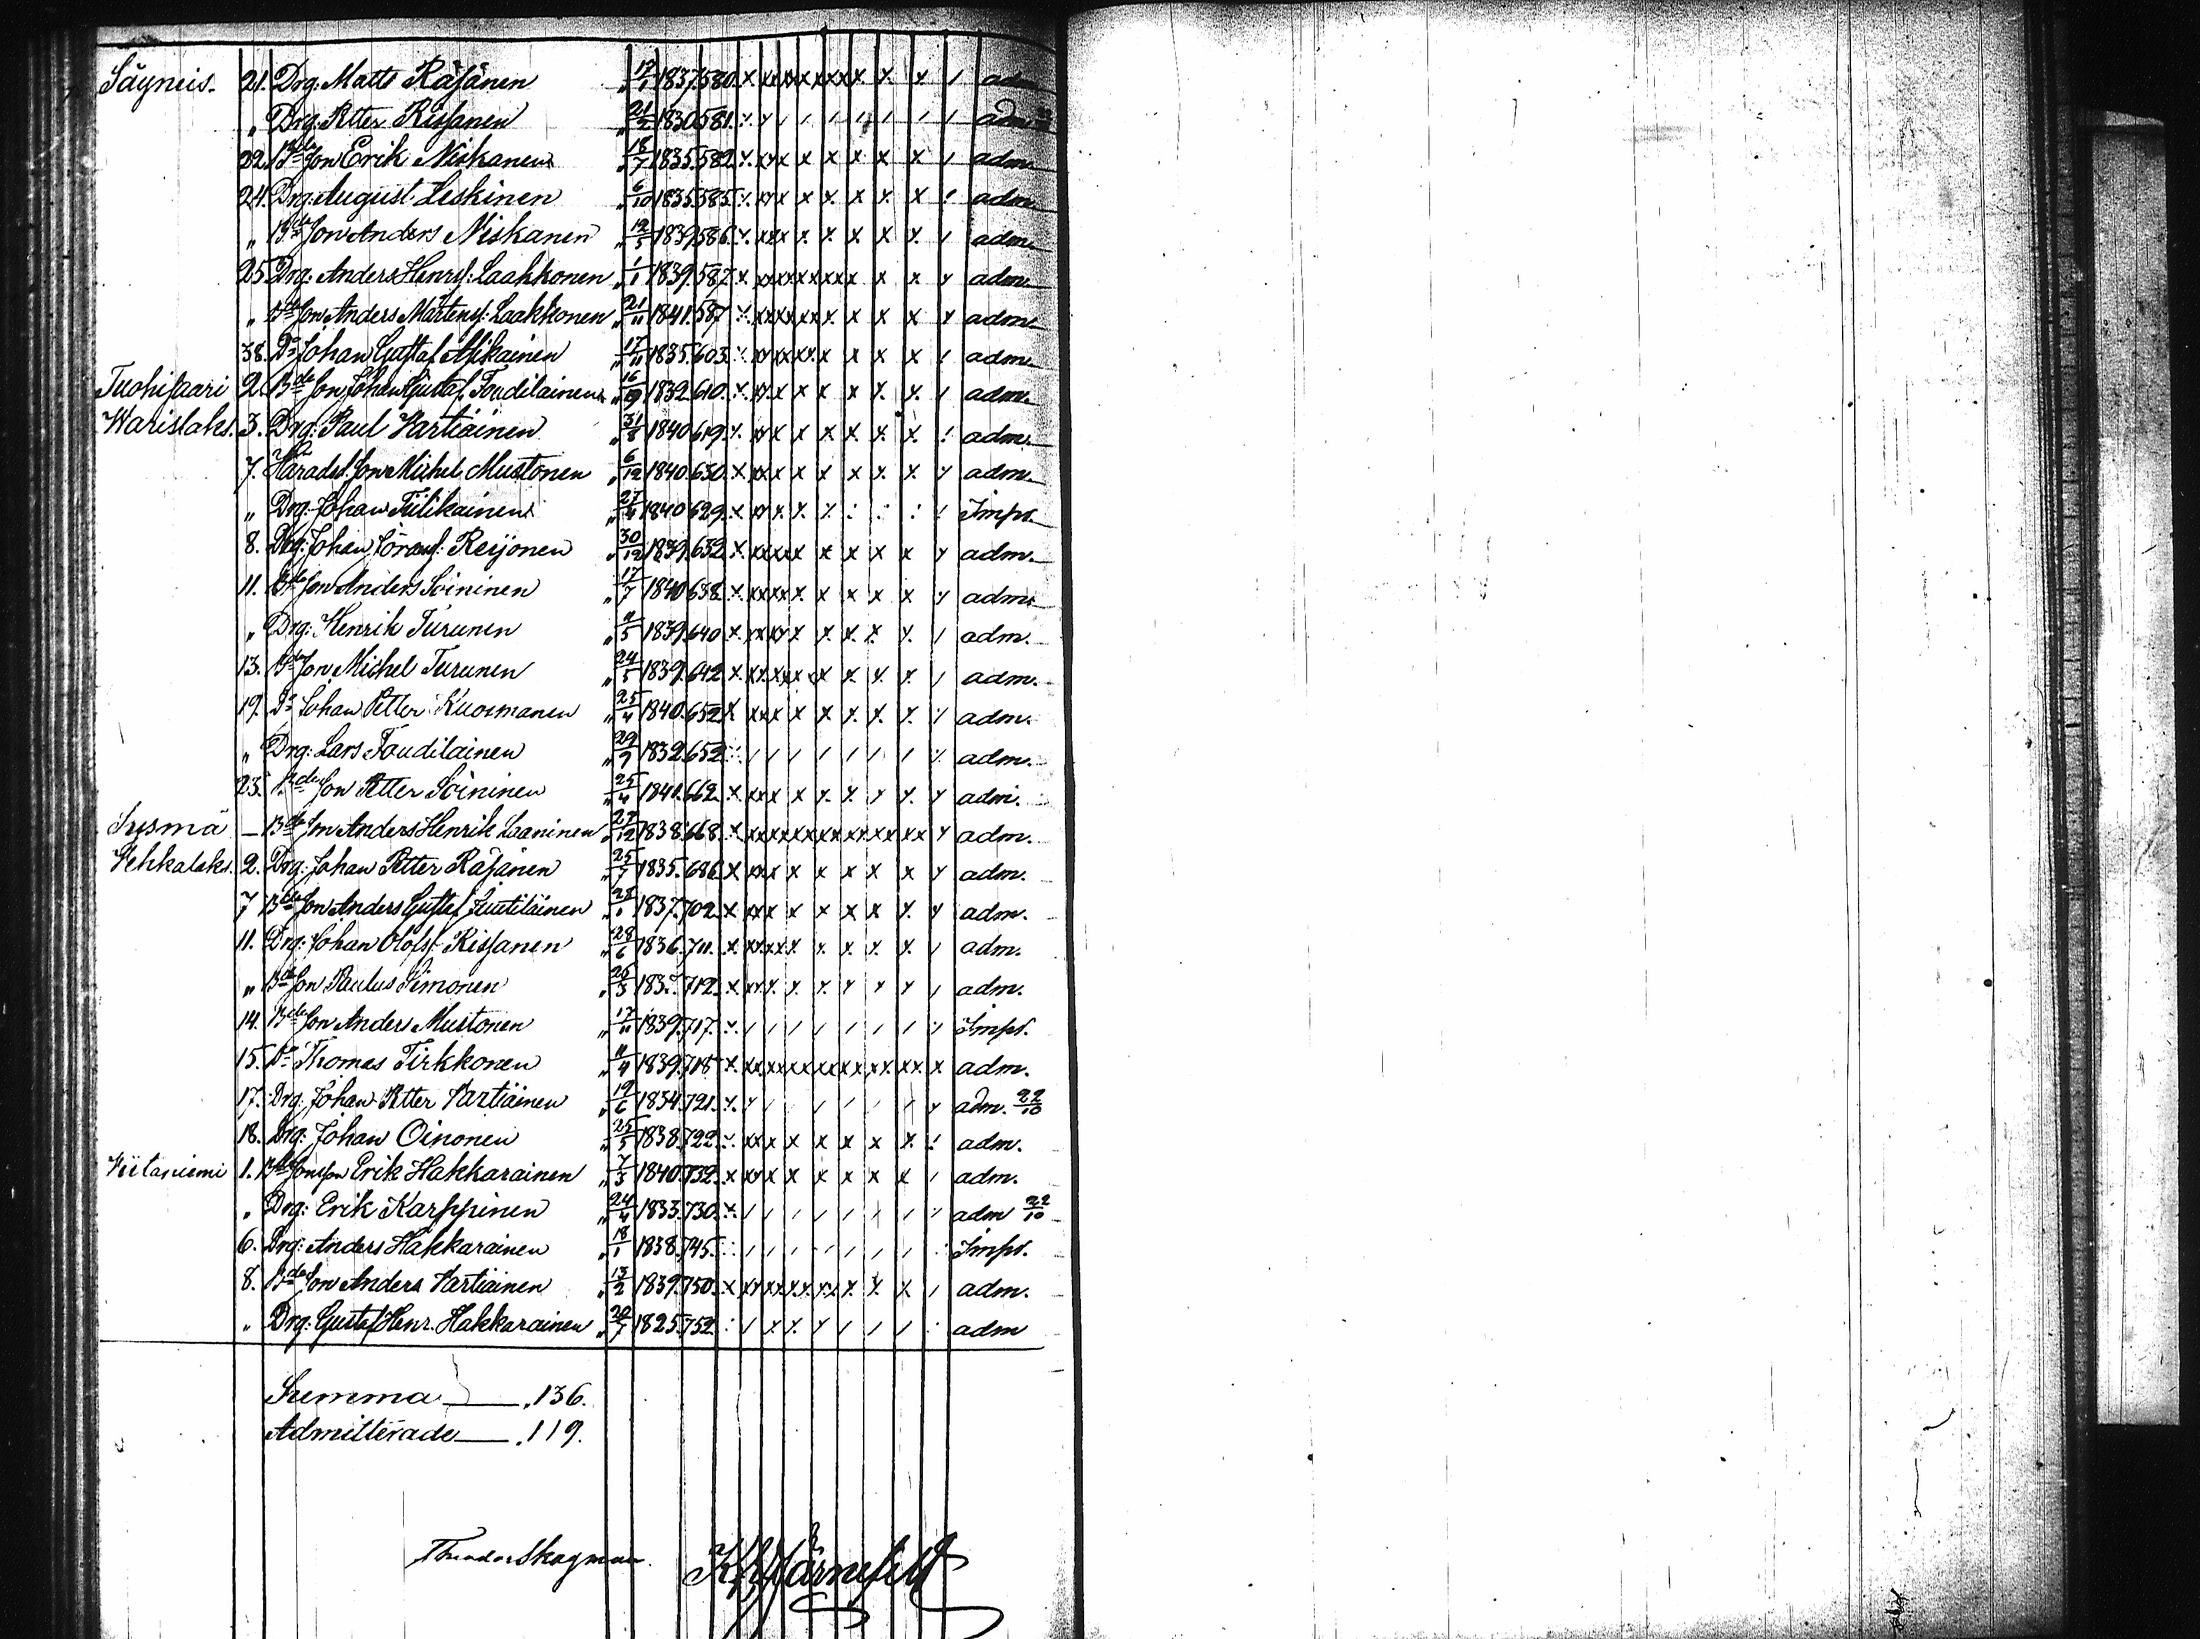 Säyneis. 21. Drg. Matts Räsänen 17/1 1837. 580. x xxxxxxxx x x / adm.
" Drg. Petter Rissanen 21/2 1830. 581. adm.
22. Bde Son Erik Niskanen 18/7 1835. 582. x xxx x x x x x / adm.
24. Drg. August Leskinen 6/10 1835. 585. x xxx x x x x x adm.
" Bde Son Anders Niskanen 12/5 1839. 586. x xxx x x x x x / adm.
25. Drg. Anders Henrs: Laakkonen 1/1 1839. 587. x xxxxxxxx x x x adm.
" Bde Son Anders Mårtens: Laakkonen 21/11 1841. 587 adm.
38. Do Johan Gustaf Mikainen 17/11 1835. 603. adm.
Tuohisaari 2. Bde Son Johan Gustaf Toudilainen 16/9 1832. 610. adm.
Warislaks. 3. Drg. Paul Vartiainen 31/8 1840. 619. adm.
7. Härads. Son Michel Mustonen 6/12 1840. 630. adm.
" Drg. Johan Tiilikainen 1840. 629. Impr.
8. Drg. Johan Görans: Reijonen 30/12 1839. 632. adm.
11. Bde Son Anders Soininen 17/7 1840. 638. adm.
" Drg. Henrik Turunen 1839. 640. adm.
13. Bde Son Michel Turunen 24/5 1839. 642. adm.
19. Do Johan Petter Kuosmanen 25/4 1840. 652. adm.
" Drg: Lars Toudilainen 29/9 1832. 652. adm.
23. Bde Son Petter Soininen 25/4 662. adm.
Susmä — Bde Son Anders Henrik Laaninen 27/12 1838. 668. adm.
Vehkalaks. 2. Drg. Johan Petter Räsänen 25/7 1835. 686. adm.
7 Bde Son Anders Gustaf Luutilainen 28/1 1837. 702. adm.
11. Drg: Johan Olofs: Rissanen 28/6 1836. 711. adm.
" Bde Son Paulus Simonen 712. adm.
14. Bde Son Anders Mustonen 17/11 1839. 717. Impr.
15. Do Thomas Tirkkonen 11/4 1839. 718 adm.
17. Drg. Johan Petter Vartiainen 19/6 1834. 721. adm. 22/10
18. Drg: Johan Oinonen 25/5 1838. 722. adm.
Viitaniemi 1. Bde Sonson Erik Hakkarainen 7/3 1840. 732. adm.
" Drg: Erik Karppinen 24/4 1833. 730. adm 22/10
6. Drg: Anders Hakkarainen 18/1 1838. 745. Impr.
8. Bde Son Anders Vartiainen 13/2 1839. 750. adm.
" Drg: Gustaf Henr. Hakkarainen 20/7 1825. 752. adm
Summa — 136.
Admitterade — 119.
Theodor Skogman. K. Järnefelt